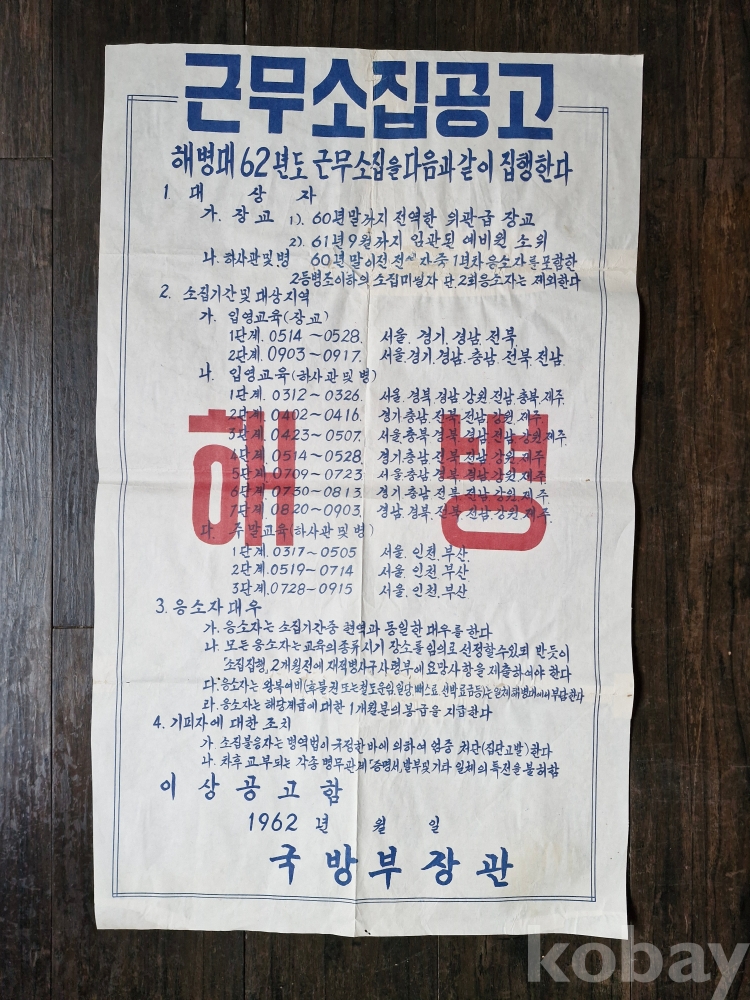 근무소집공고
해병대 62년도 근무소집을 다음과 같이 집행한다
1. 대 상 자
가. 장교 1). 60년말까지 전역한 위관급 장교
2). 61년 9월까지 임관된 예비원 소위
나. 하사관및병 60년말이전 전역자중 1년차응소자를 포함한
2등병조이하의 소집미필자 단, 2회응소자는 제외한다
2. 소집기간및 대상지역
가. 입영교육(장교)
1단계. 0514~0528. 서울. 경기. 경남. 전북
2단계. 0903~0917. 서울. 경기. 경남. 충남. 전북. 전남.
나. 입영교육(하사관및병)
1단계. 0312~0326. 서울. 경북. 경남. 강원. 전남. 충북. 제주.
2단계. 0402~0416. 경기. 충남. 전북. 전남. 강원. 제주.
3단계. 0423~0507. 서울. 충북. 경북. 경남. 전남. 강원. 제주.
4단계. 0514~0528. 경기. 충남. 전북. 전남. 강원. 제주.
5단계. 0709~0723. 서울. 충남. 경북. 경남. 강원. 제주.
6단계. 0730~0813. 경기. 충남. 전북. 전남. 강원. 제주.
7단계. 0820~0903. 경남. 경북. 전북. 전남. 강원. 제주.
해 병
다. 주말교육(하사관및병)
1단계. 0317~0505 서울. 인천. 부산.
2단계. 0519~0714 서울. 인천. 부산
3단계. 0728~0915 서울. 인천. 부산
3. 응소자대우
가. 응소자는 소집기간중 현역과 동일한 대우를 한다
나. 모든 응소자는 교육의 종류 시기 장소를 임의로 선정할수있되 반듯이
소집집행, 2개월전에 재적병사구사령부에 요망사항을 제출하여야 한다
다. 응소자는 왕복여비(후불권 또는 철도운임, 일당 뻐스료 선박료급등)는 일체 해병대에서 부담한다
라. 응소자는 해당계급에 대한 1개월분의 봉급을 지급한다
4. 기피자에 대한 조치
가. 소집불응자는 병역법이 규정한바에 의하여 엄중 처단(집단고발)한다
나. 차후 교부되는 각종 병무관계 증명서, 발부및 기타 일체의 특전을 불허함
이 상 공 고 함
1962 년 월 일
국 방 부 장 관
kobay